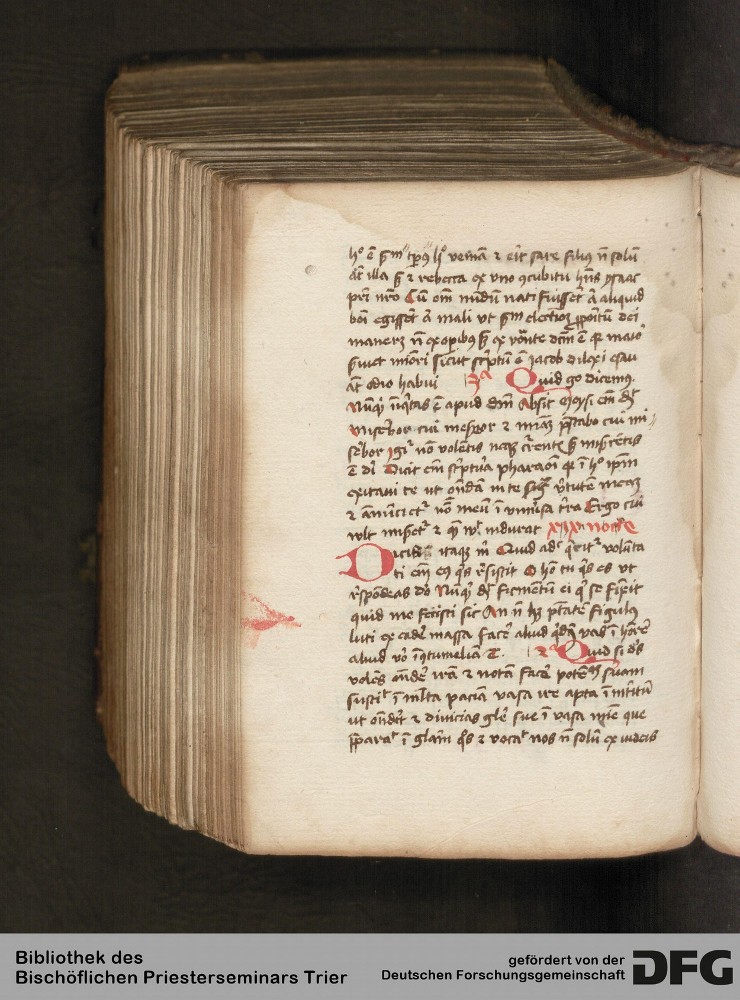 h° ē ẜm tp̄9 h° veniā ⁊ erit sare filius n̄ solū
āt illa ẜ ⁊ rebecca ex vno ꝯcubitu hn̄s ysaac
pr̄is nr̄o Cū em̄ nūdū nati fuissēt āt aliquid
boni egissēt āt mali ut ẜm electioꝫ ꝓpoītū dei
maneret n̄ ex opibus ẜ ex vocāte dcm̄ ē qꝛ maior
ẜuiet minori sicut scriptū ē Jacob dilexi esau
āt odio habui 3ᵃ Quid go dicemus.
Nūqͥd iniqͥtas ē apud dm̄ Absit Moysi em̄ dꝛ
Miserebor cui misereor ⁊ miam p̄stabo cui mi
serebor Igiᵗ non volentis neqꝫ currentis ẜ miserentis
ē dei Dicit em̄ scriptura pharaoni qꝛ ī h° ipm̄
excitaui te ut ondam in te virtutem meaꝫ
⁊ annūcietᵘʳ nomē meū ī vniuersa tr̄ra Ergo cui
vult miseretᵘʳ ⁊ quem vlt indurat
Dicis itaqꝫ m̄ Quid adͨ queritᵘʳ volunta
ti em̄ eiꝰ qͥs resistit O homo tu qͥs es ut
respondeas do Nūqͥd dꝛ figmentū ei qͥ se finxit
quid me fecisti sic An n̄ hꝫ ptatē figulus
luti ex eadē massa facere aliud qͥdem vas ī honorē
aliud vo ī ꝯtumeliā T. Quid si ds
volēs ondere irā ⁊ notam facere potentiā suam
sustinuit ī multa paciā vasa ire apta ī interitū
ut ondēt ⁊ diuicias glē sue ī vasa mīe que
p̄parauit ī glam qͦs ⁊ vocauit nos n̄ solū ex iudeis
Bibliothek des
Bischöflichen Priesterseminars Trier
gefördert von der
Deutschen Forschungsgemeinschaft
DFG